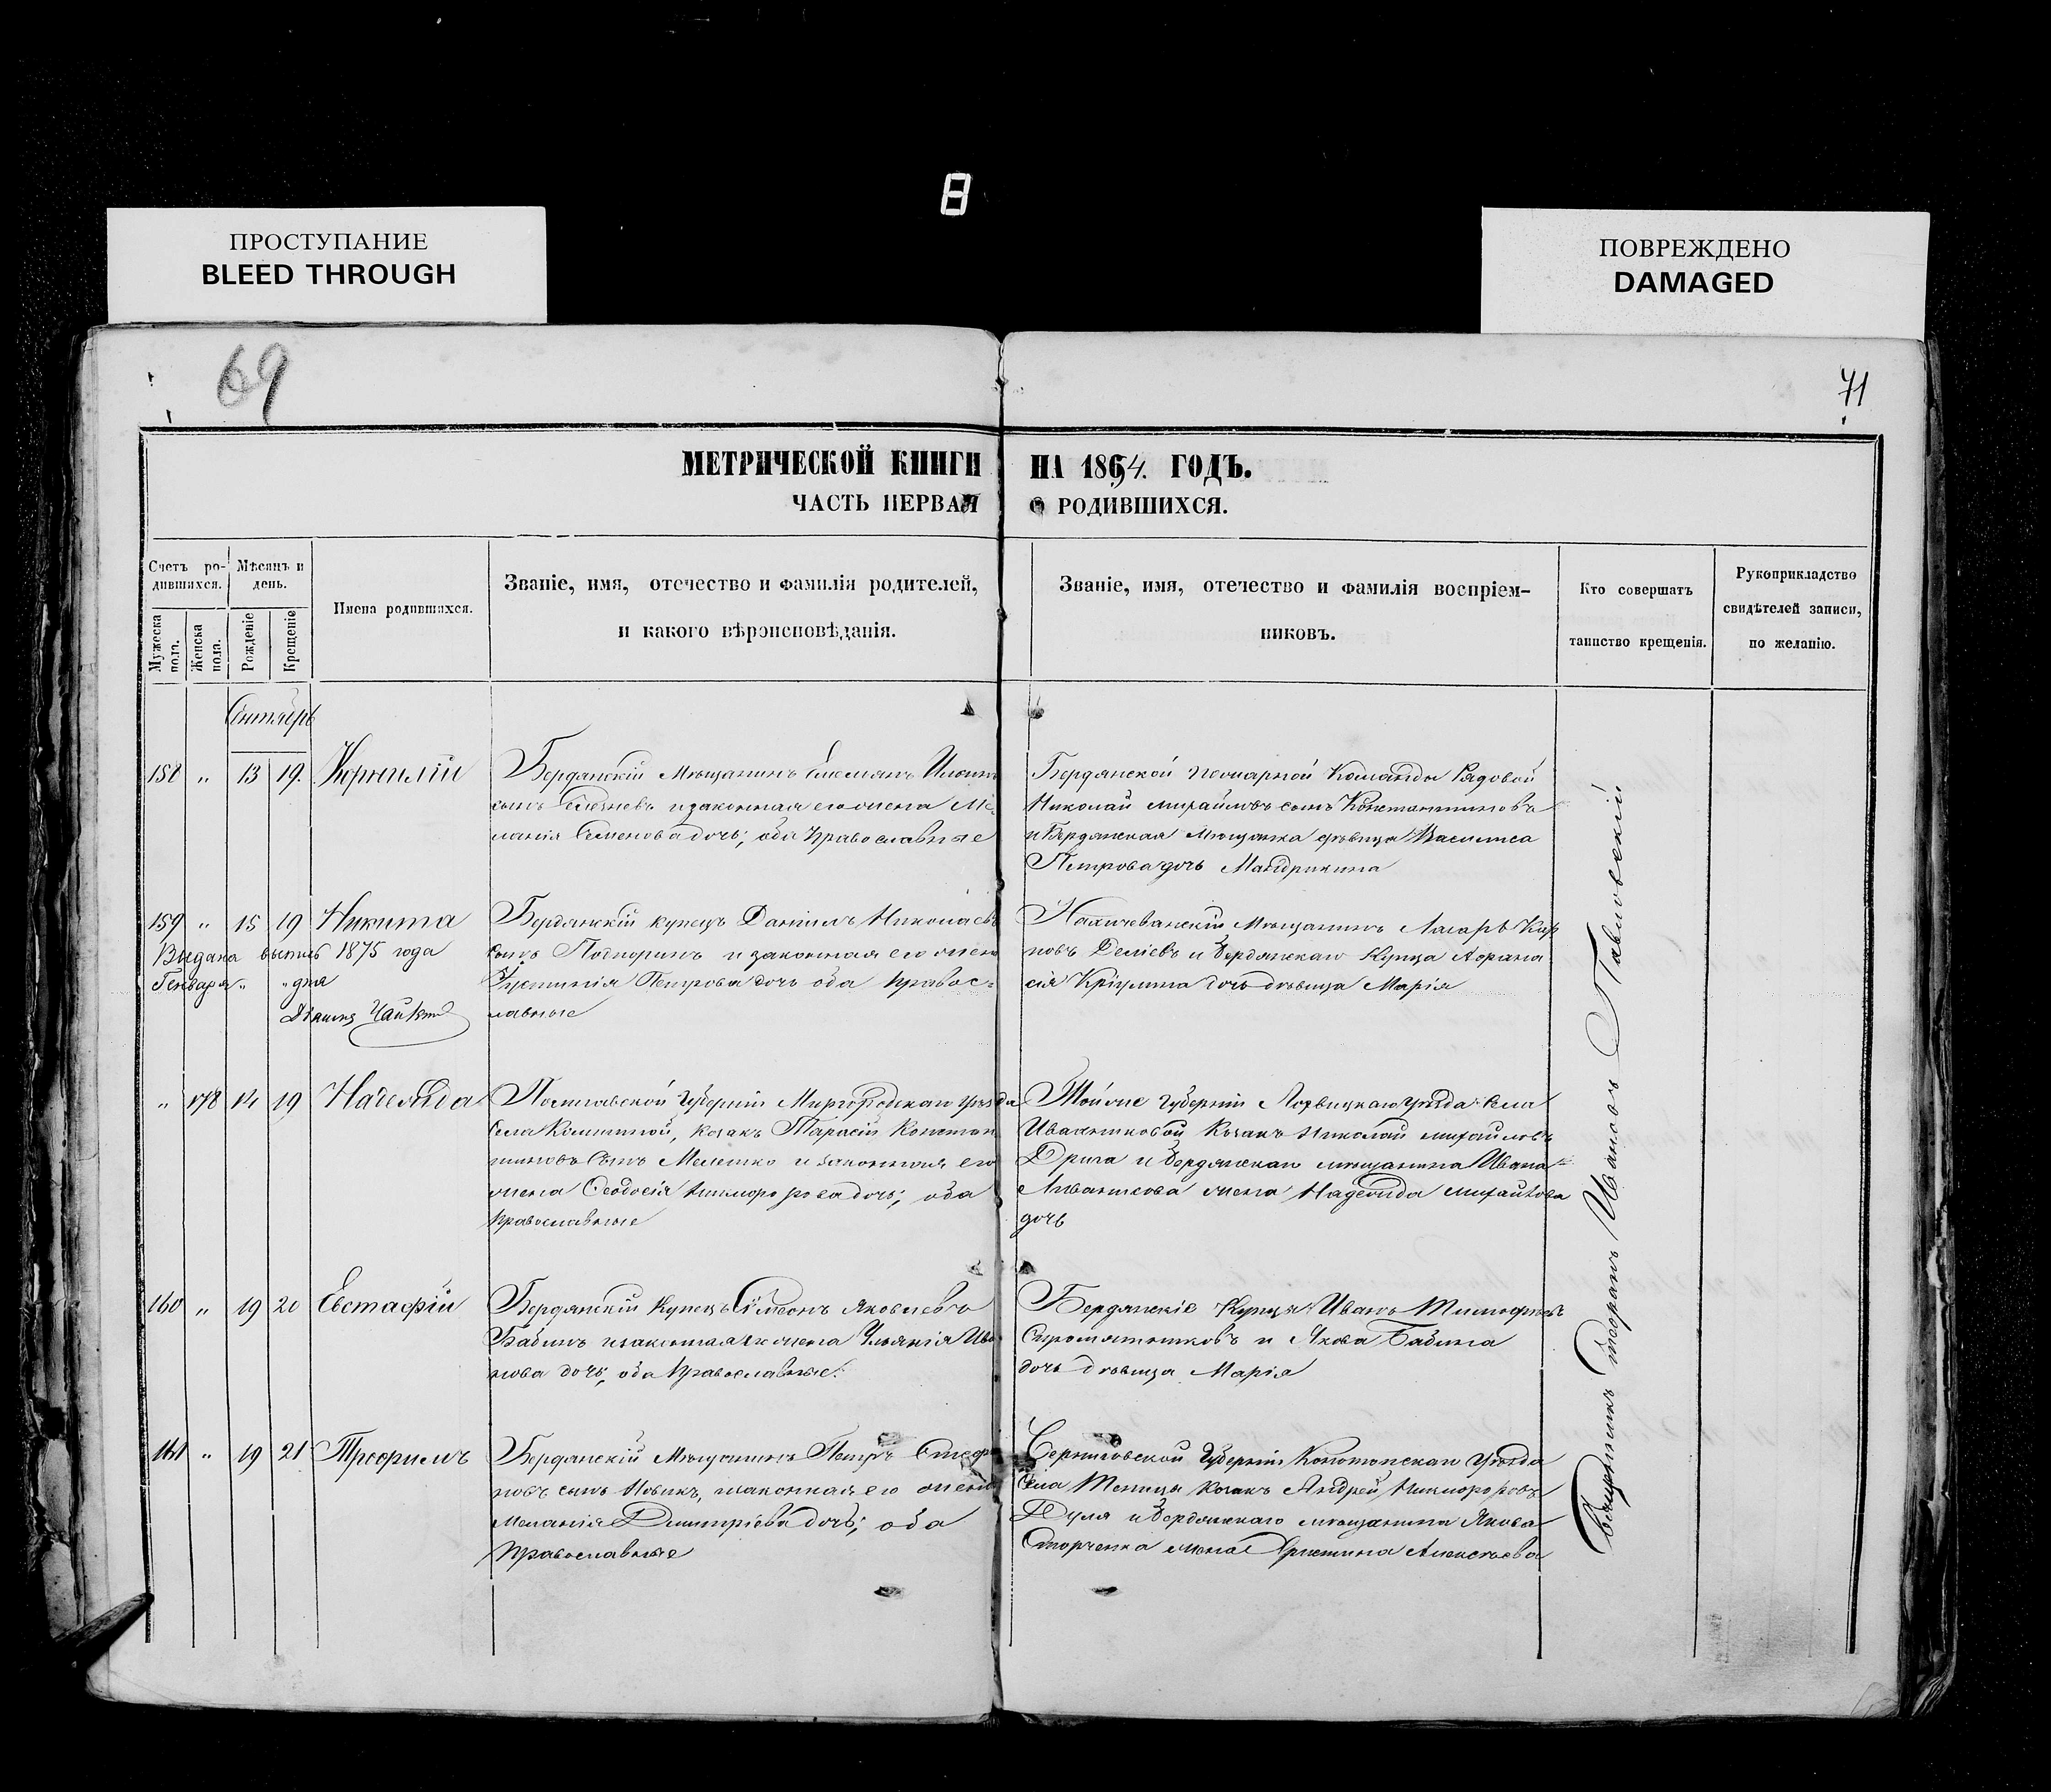 8
ПРОСТУПАНИЕ
BLEED THROUGH
ПОВРЕЖДЕНО
DAMAGED
69
71
МЕТРИЧЕСКОЙ КНИГИ НА 1864. ГОДЪ.
ЧАСТЬ ПЕРВАЯ О РОДИВШИХСЯ.
Счетъ ро-
дившихся.
Мужеска пола.
Женска пола.
Мѣсяцъ и
день.
Рожденіе
Крещеніе
Имена родившихся.
Званіе, имя, отечество и фамилія родителей,
и какого вѣроисповѣданія.
Званіе, имя, отечество и фамилія воспріем-
никовъ.
Кто совершатъ
таинство крещенія.
Рукоприкладство
свидѣтелей записи,
по желанію.
Сентябрь
158 „ 13 19. Корнилій
Бердянскій Мѣщанинъ
сынъ и законная его жена Ме-
ланія Семенова дочь; оба православные
Бердянской пожарной Команды Рядовой
Николай Михайловъ сынъ Константиновъ
и Бердянская Мѣщанка дѣвица Василиса
Петрова дочь Мандрыкина
159 „ 15 19 Никита
Выдана выпись 1875 года
Генваря „ „ дня
Бердянскій купецъ Даніилъ Николаевъ
сынъ и законная его жена
Іустинія Петрова дочь оба правос-
лавные
Нахичеванскій Мѣщанинъ Лазарь
и Бердянскаго Купца Афана
сія дочь дѣвица Марія
„ 178 14 19 Надежда
Полтавской Губерніи Миргородскаго уѣзда
села козакъ Тарасій Констан
тиновъ сынъ Мелешко и законная его
жена Ѳеодосія Никифорова дочь; оба
православные
Той же Губерніи Лохвицкаго уѣзда села
Козакъ Николай Михайловъ
и Бердянскаго мѣщанина Ивана
жена Надежда Михайлова
дочь
160 „ 19 20 Евстафій
Бердянскій Купецъ Симеонъ Яковлевъ
Бабинъ и законная его жена Ульянія Ива
нова дочь; оба православные.
Бердянскіе Купцы: Иванъ Тимофеевъ
Сыромятниковъ и Якова Бабина
дочь дѣвица Марія
161 „ 19 21 Трофимъ
Бердянскій Мѣщанинъ Петръ Стефа
новъ сынъ Новикъ, и законная его жена
Меланія Димитріева дочь; оба
православные
Черниговской Губерніи Конотопскаго уѣзда
села козакъ Андрей Никифоровъ
Дуля и Бердянскаго мѣщанина Якова
Сторченка жена Христина Алексѣева
Священникъ Іоаннъ Павловскій